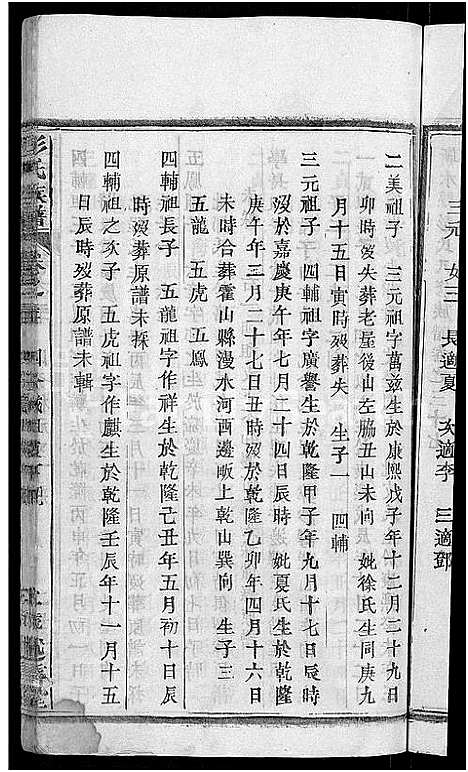 三元　女三　長適夏　次適李　三適鄧
二美祖子　三元祖字萬兹生於康熙戊子年十二月二十九日
卯時歿失葬老屋後山左脇丑山未向　妣徐氏生同庚九
月十五日寅時歿葬失　生子一　四輔
三元祖子　四輔祖字廣譽生於乾隆甲子年九月十七辰時
歿於嘉慶庚午年七月二十四日辰時　妣夏氏生於乾隆
庚午年三月二十七日丑時歿乾隆乙卯年四月十六日
未時合葬霍山縣漫水河西邊畈上乾山巽向　生子三
五龍　五虎　五鳳
四輔祖長子　五龍祖字作祥生於乾隆己丑年五月初十日辰
時歿葬原譜未採
四輔祖之次子　五虎祖字作麒生於乾隆壬辰年十一月十五
日辰時歿葬原譜未輯
彭氏族譜　卷之